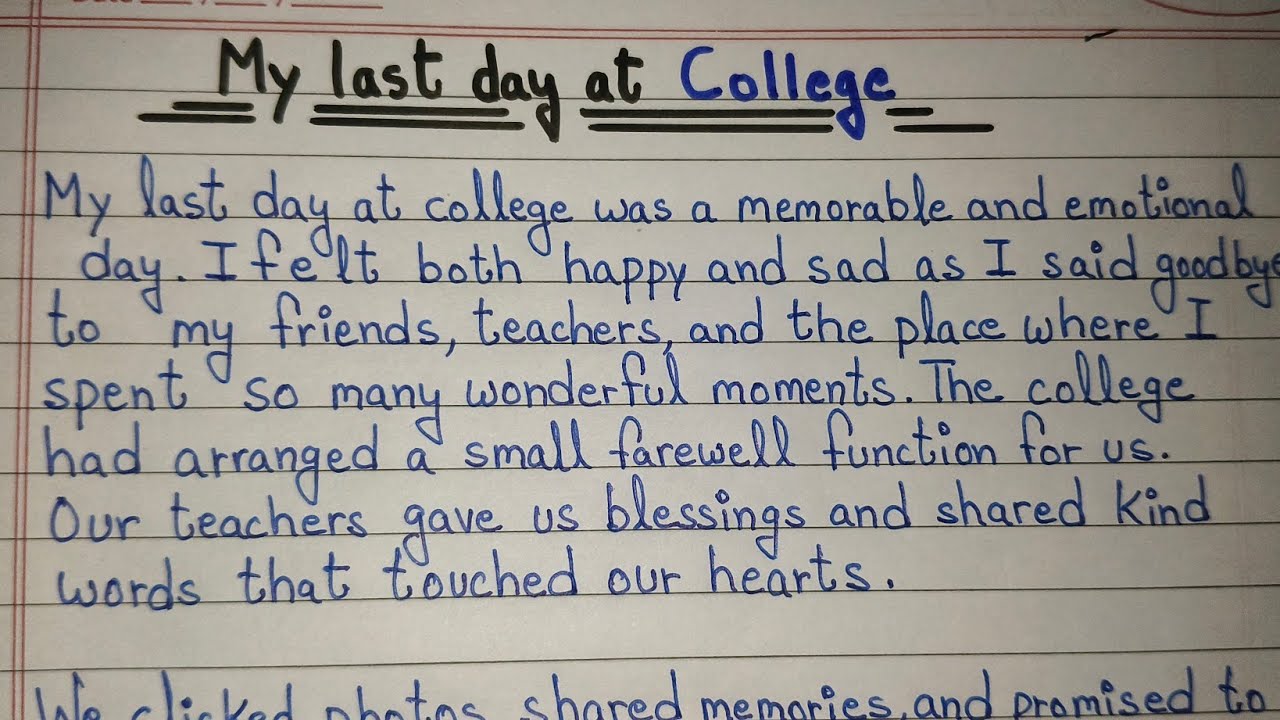 My last day at College
My last day at college was a memorable and emotional
day. I felt both happy and sad as I said goodbye
to my friends, teachers, and the place where I
spent so many wonderful moments. The college
had arranged a small farewell function for us.
Our teachers gave us blessings and shared kind
words that touched our hearts.
We clicked photos, shared memories, and promised to